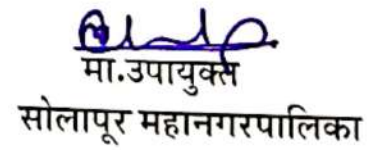 मा.उपायुक्त
सोलापूर महानगरपालिका